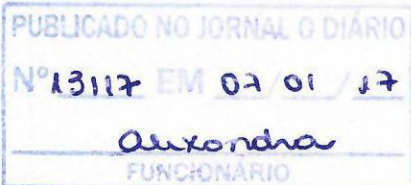 PUBLICADO NO JORNAL O DIÁRIO
Nº 13117 EM 07 / 01 / 17
Alexandra
FUNCIONÁRIO